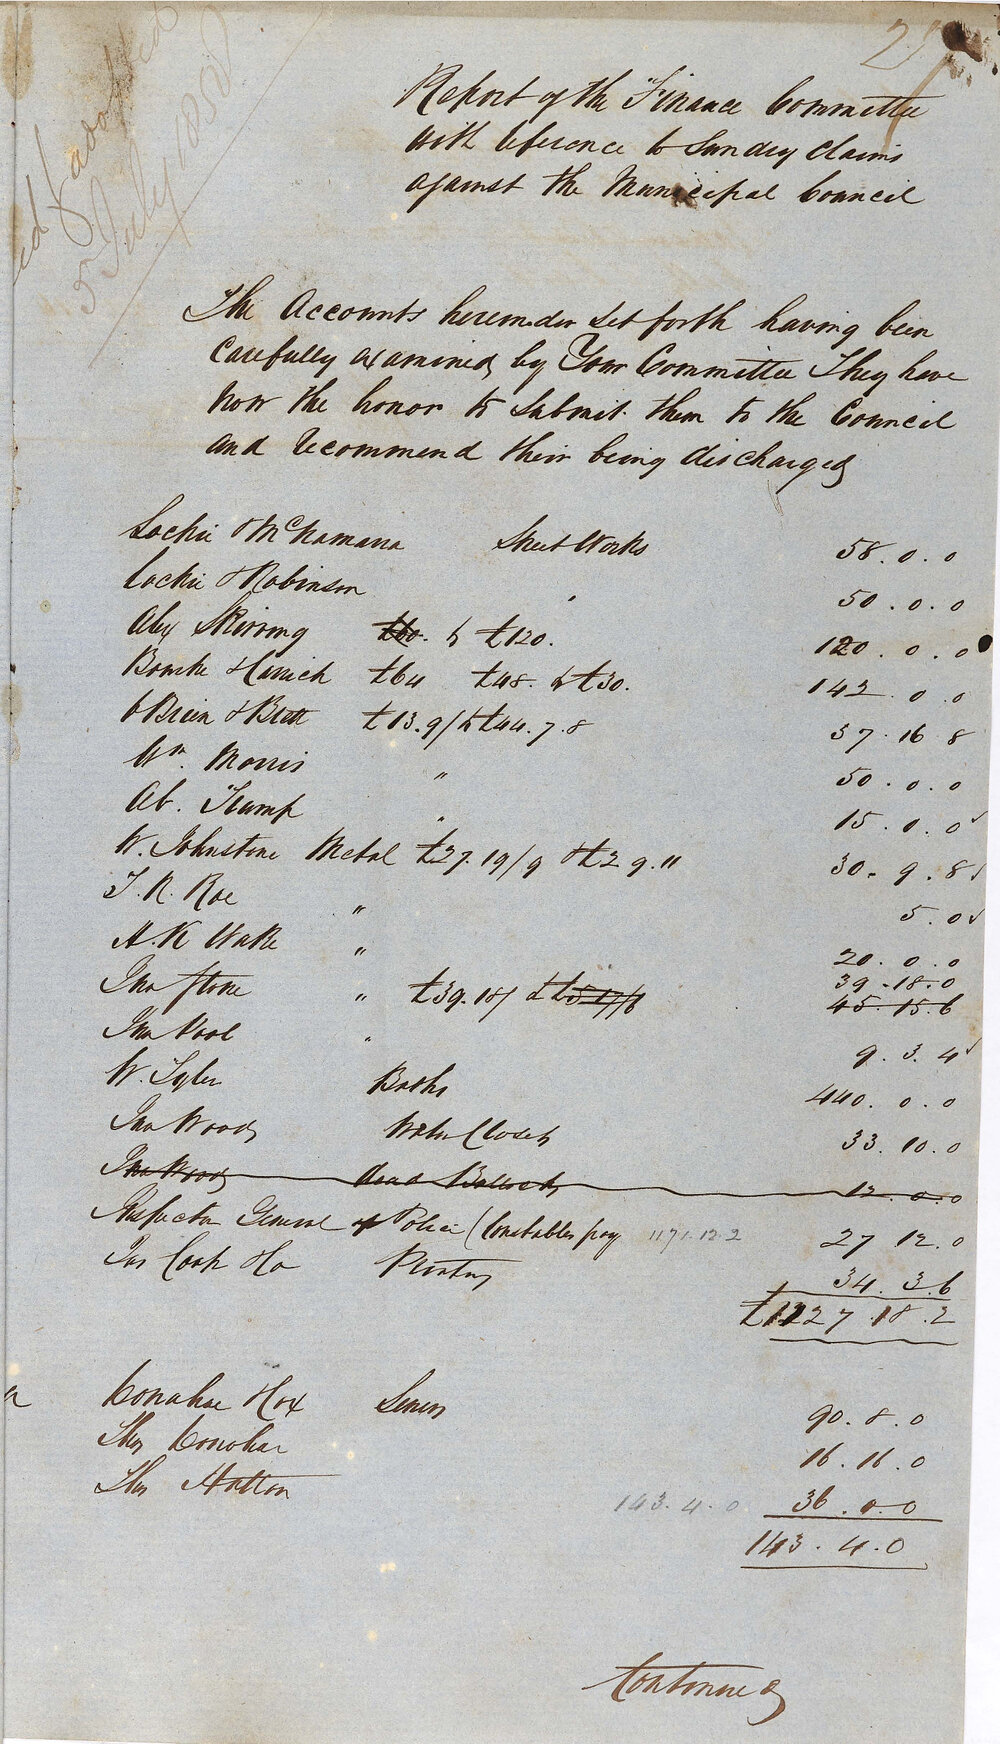 Report of the Finance Committee
with reference to Sundry Claims
against the Municipal Council
5 July 1850
The Accounts hereunder set forth having been
Carefully examined by Your Committee They have
now the honor to submit them to the Council
and recommend their being discharged
Lockie & McNamara Street Works 58. 0. 0
Lockie & Robinson " 50. 0. 0
Alex Skirving £60. & £120. 120. 0. 0
Bourke & £64 £48. & £30. 142. 0. 0
O'Brien & Brett £13.9/ & £44.7.8 57. 16. 8
Wm. Morris " 50. 0. 0
Ab. Tramp " 15. 0. 0
W. Johnstone Metal £27.19/9 & £2 9. " 30. 9. 8
T. R. Roe " 5. 0
H. K Wake " 20. 0. 0
39. 18. 0
Jno Stone " £39.18/ & £5.17/6 45. 15. 6
Jno Pool " 9. 3. 4
W. Tyler Baths 440. 0. 0
Jno Woods Water Closets 33. 10. 0
Jno Woods dead Bullocks 12. 0. 0
Inspector General of Police (Constables pay 1171.12.2 27 12. 0
Jas Cook & Co Printing 34. 3. 6
£1227. 18. 2
Conahae & Cox Sewers 90. 8. 0
Thos Conohae 16. 16. 0
Thos Hatton 143. 4. 0 36. 0. 0
143. 4. 0
Continued